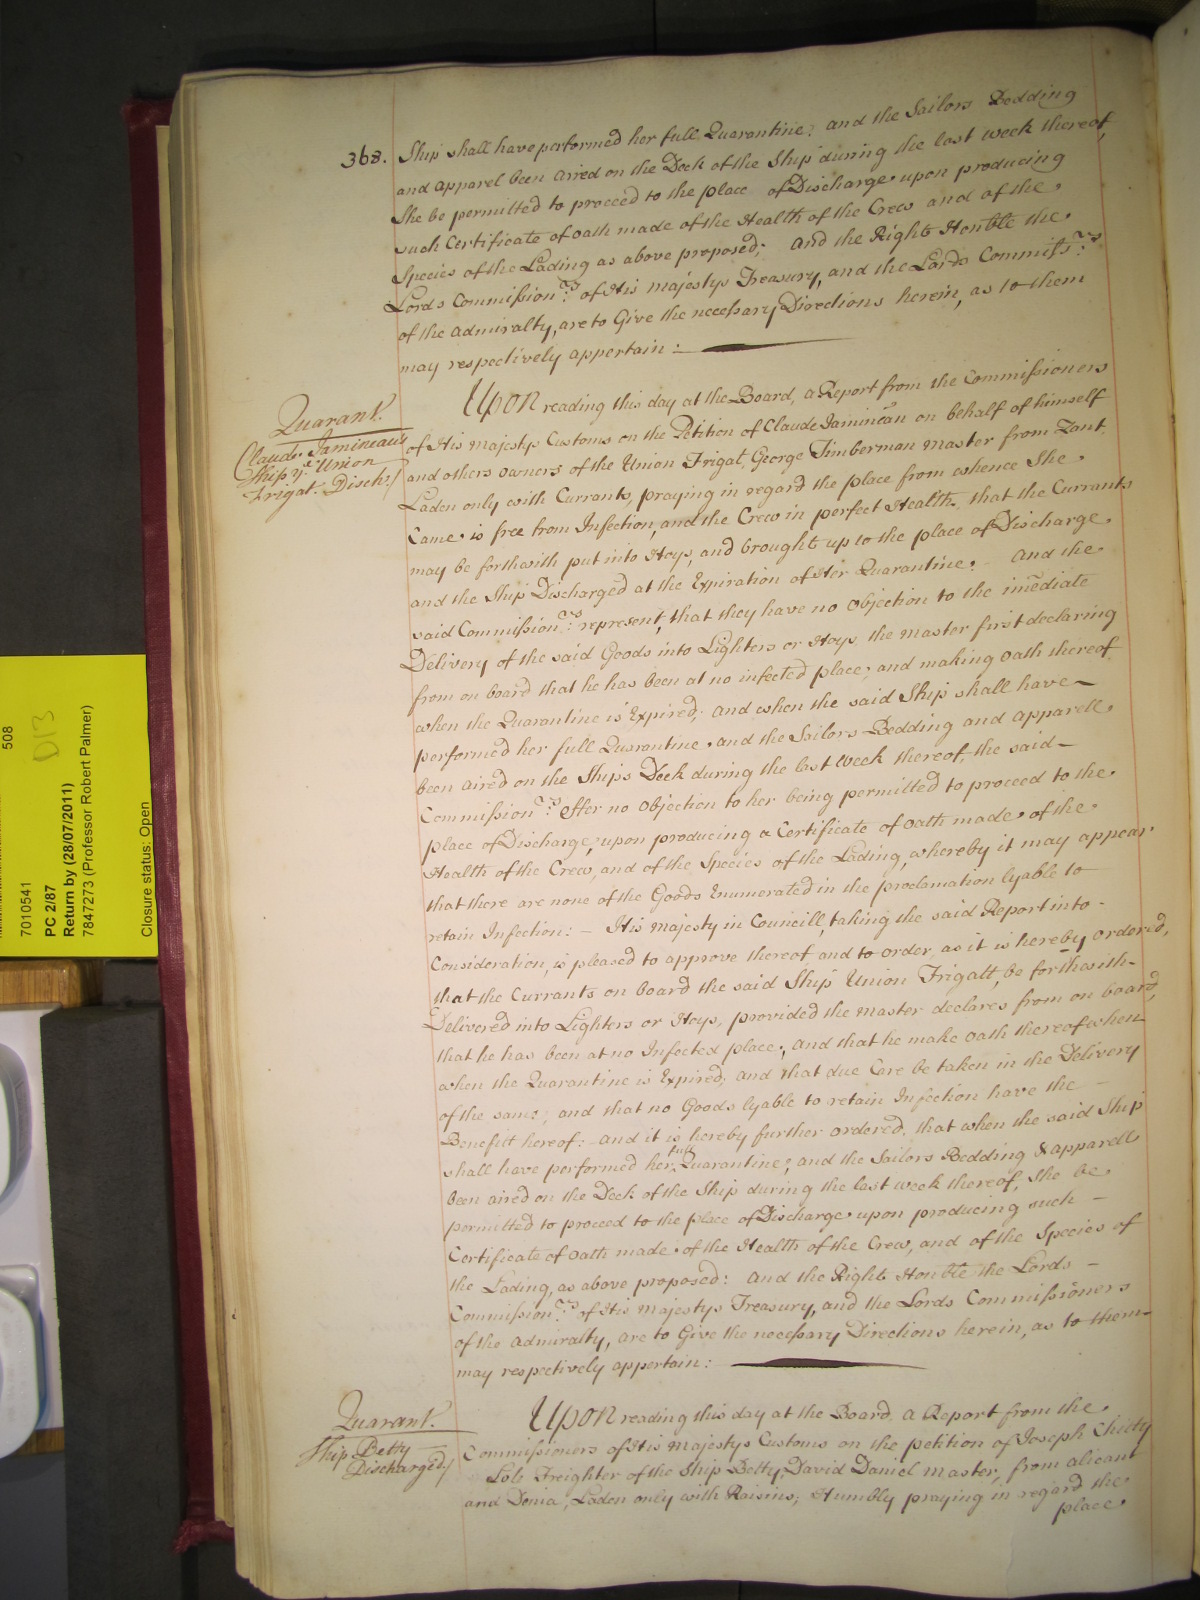 368. Ship shall have performed her full Quarantine; and the Sailors Bedding
and apparel been aired on the Deck of the Ship during the last week thereof,
She be permitted to proceed to the place of Discharge upon producing
such Certificate of oath made of the Health of the Crew and of the
Species of the Lading as above proposed; And the Right Honble the
Lords Commission:rs of His Majestys Treasury, and the Lords Commiss:rs
of the Admiralty, are to Give the necessary Directions herein, as to them
may respectively appertain: —
Quarant.
Claude Jamineaus
Ship ye Union
Frigat. Disch:/
Upon reading this day at the Board, a Report from the Commissioners
of His Majestys Customs on the Petition of Claude Jamineau on behalf of himself
and others owners of the Union Frigat, George Timberman Master from Zant
Laden only with Currants, praying in regard the place from whence She
Came is free from Infection, and the Crew in perfect Health, that the Currants
may be forthwith put into Hoys, and brought up to the place of Discharge
and the Ship Discharged at the Expiration of Her Quarantine: And the
said Commission:rs represent, that they have no objection to the imediate
Delivery of the said Goods into Lighters or Hoys, the Master first declaring
from on board that he has been at no infected place; and making oath thereof
when the Quarantine is Expired; and when the said Ship shall have
performed her full Quarantine, and the Sailors Bedding and apparell
been aired on the Ships Deck during the last week thereof, the said
Commission:rs Offer no Objection to her being permitted to proceed to the
place of Discharge, upon producing a Certificate of oath made of the
Health of the Crew, and of the Species of the Lading, whereby it may appear
that there are none of the Goods Enumerated in the proclamation lyable to
retain Infection: — His Majesty in Councill, taking the said Report into
Consideration, is pleased to approve thereof and to order, as it is hereby ordered,
that the Currants on board the said Ship Union Frigatt, be forthwith
Delivered into Lighters or Hoys, provided the Master declares from on board,
that he has been at no Infected place, and that he make oath thereof when
when the Quarantine is Expired; and that due Care be taken in the Delivery
of the same; and that no Goods lyable to retain Infection have the
Benefitt hereof: — and it is hereby further ordered, that when the said Ship
shall have performed her full Quarantine, and the Sailors Bedding & apparell
been aired on the Deck of the Ship during the last week thereof, She be
permitted to proceed to the place of Discharge upon producing such
Certificate of oath made of the Health of the Crew, and of the Species of
the Lading, as above proposed: And the Right Honble the Lords
Commission:rs of His Majestys Treasury, and the Lords Commissioners
of the Admiralty, are to Give the necessary Directions herein, as to them
may respectively appertain: —
Quarant.
Ship Betty
Discharged/
Upon reading this day at the Board, a Report from the
Commissioners of His Majestys Customs on the petition of Joseph Chitty
Sole Freighter of the Ship Betty, David Daniel Master, from alicant
and Denia, Laden only with Raisins; Humbly praying in regard the
place
508
D13
7010541
PC 2/87
Return by (28/07/2011)
7847273 (Professor Robert Palmer)
Closure status: Open